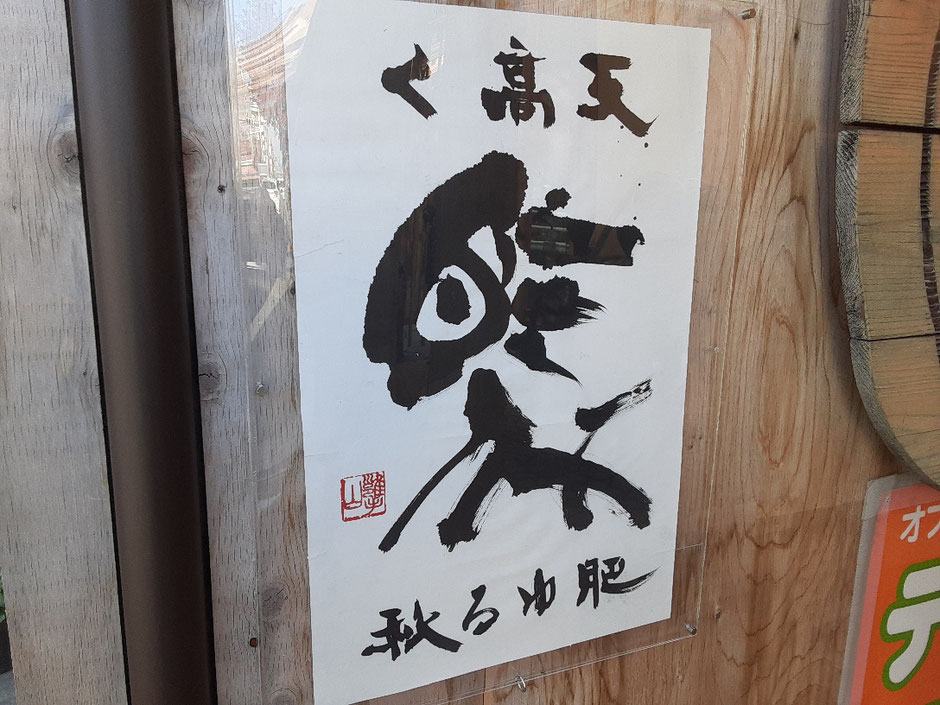 天高く
馬
肥ゆる秋
テ